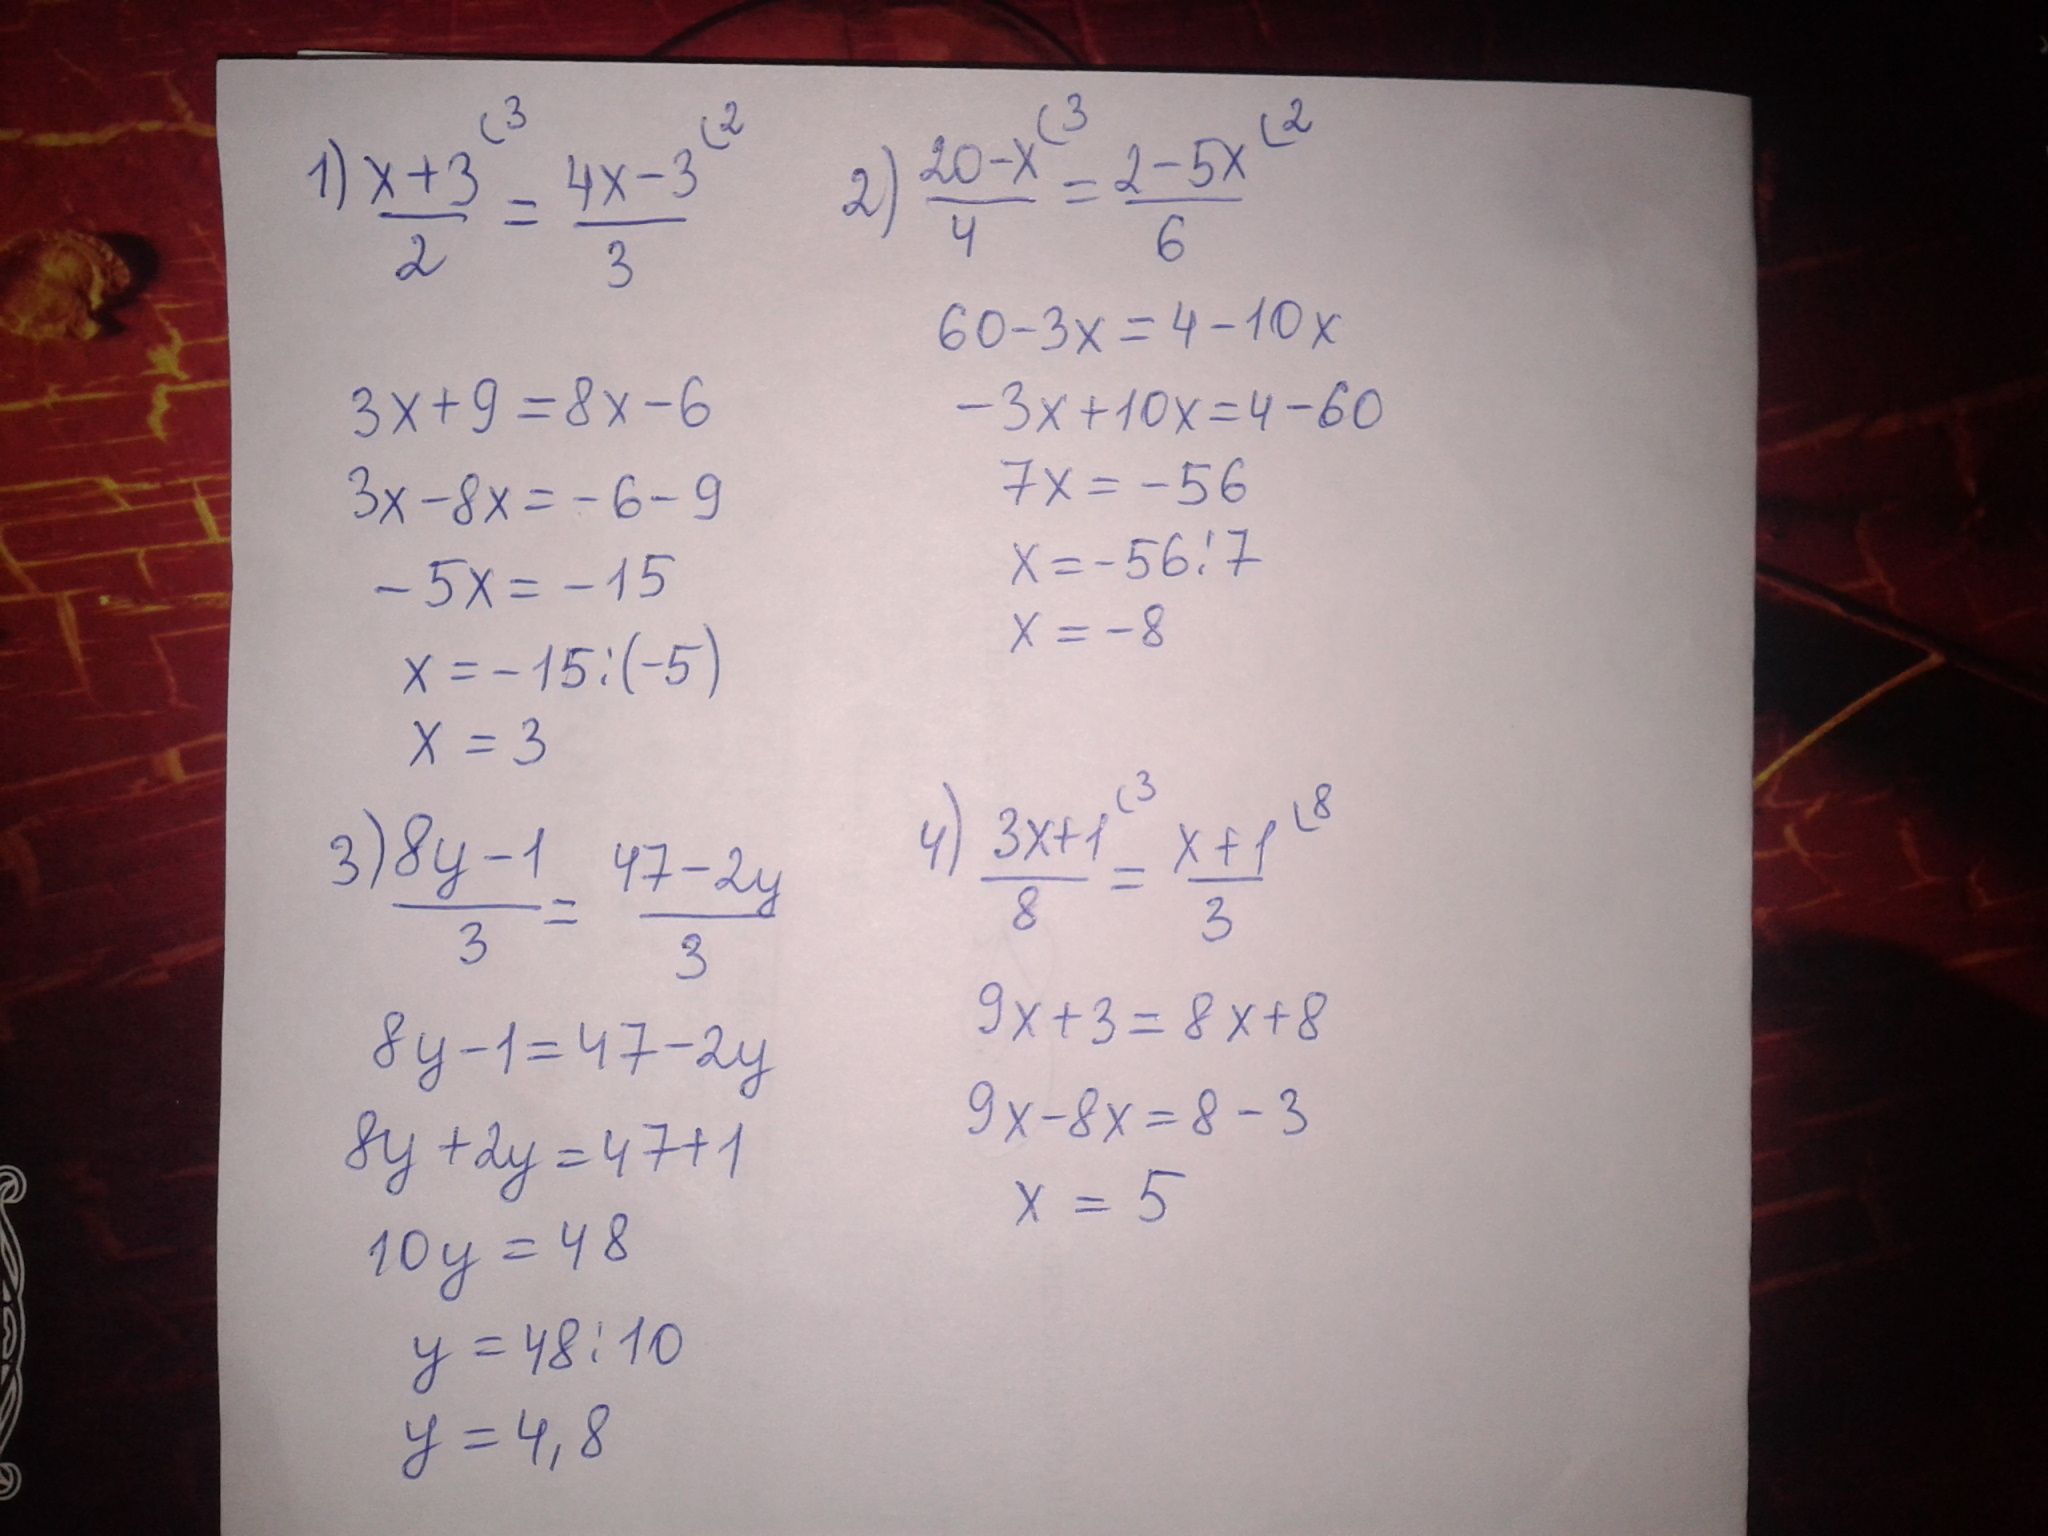 1) (x+3)/2 (3 = (4x-3)/3 (2
3x+9=8x-6
3x-8x=-6-9
-5x=-15
x=-15:(-5)
x=3
2) (20-x)/4 (3 = (2-5x)/6 (2
60-3x=4-10x
-3x+10x=4-60
7x=-56
x=-56:7
x=-8
3) (8y-1)/3 = (47-2y)/3
8y-1=47-2y
8y+2y=47+1
10y=48
y=48:10
y=4,8
4) (3x+1)/8 (3 = (x+1)/3 (8
9x+3=8x+8
9x-8x=8-3
x=5